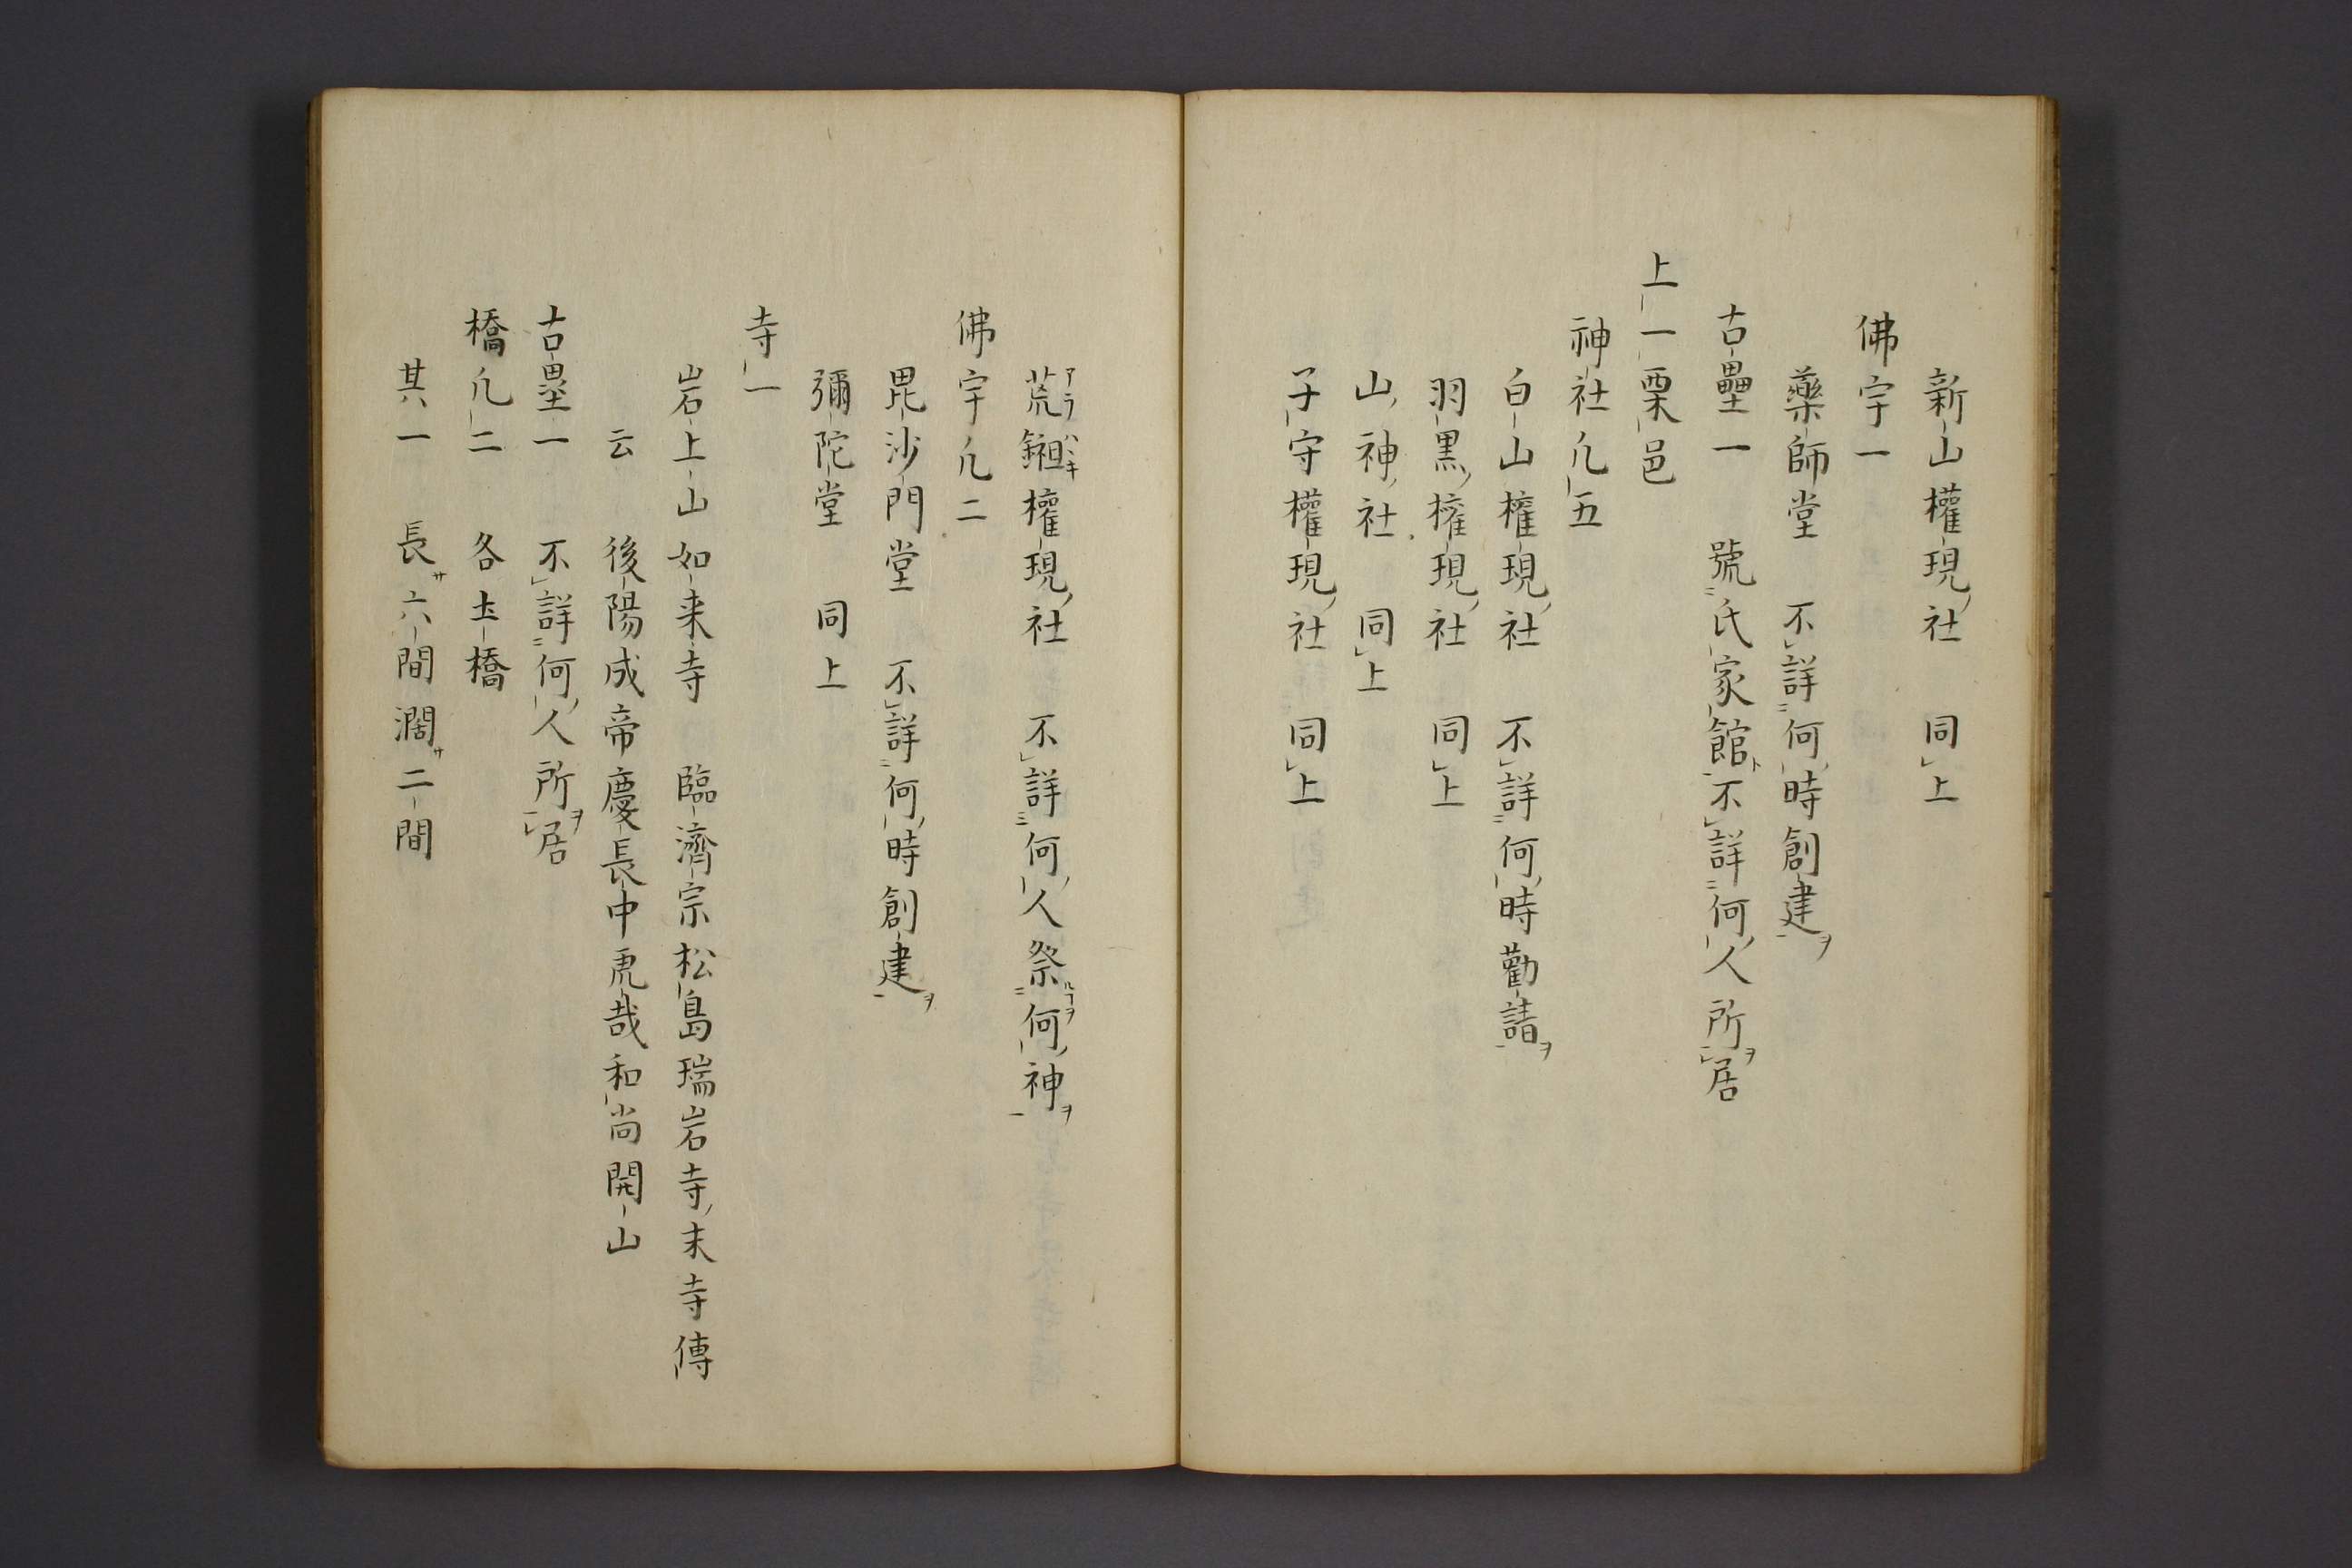 新山權現社　同上
佛宇一
藥師堂　不詳何時創建ヲ
古壘一　號氏家館ト不詳何人所ヲ居
上一栗邑
神社凡五
白山權現社　不詳何時勸請ヲ
羽黒權現社　同上
山神社　同上
子守權現社　同上
荒鎺權現社　不詳何人祭何神ヲ
アラハヽキ
佛宇凡二
毘沙門堂　不詳何時創建ヲ
彌陀堂　同上
寺一
岩上山如来寺　臨濟宗松島瑞岩寺末寺傳
云　後陽成帝慶長中虎哉和尚開山
古壘一　不詳何人所ヲ居
橋凡二　各土橋
其一　長サ六間濶サ二間